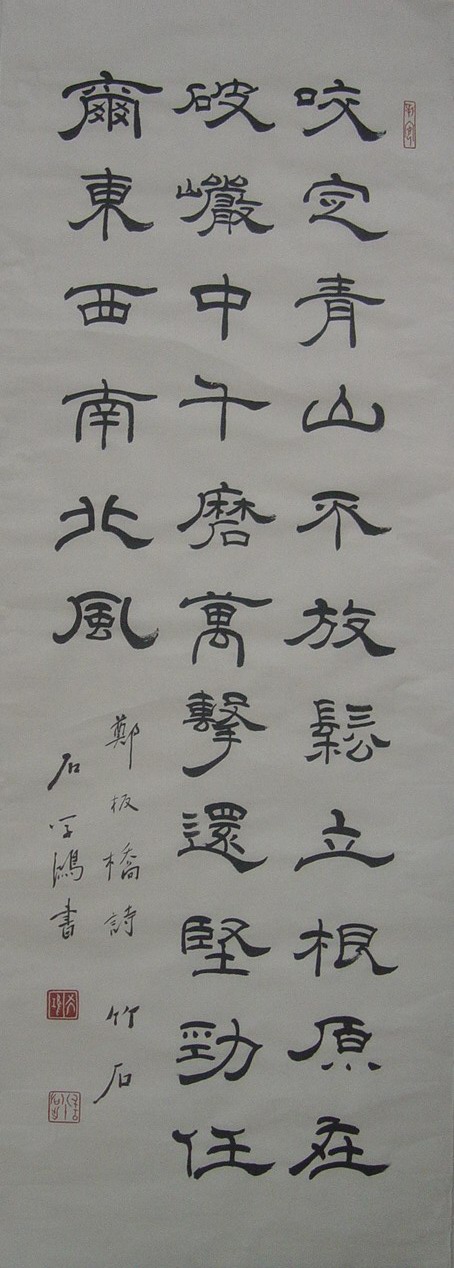 咬定青山不放鬆立根原在
破巗中千磨萬擊還堅勁任
爾東西南北風
鄭板橋詩 竹石
石学鴻書